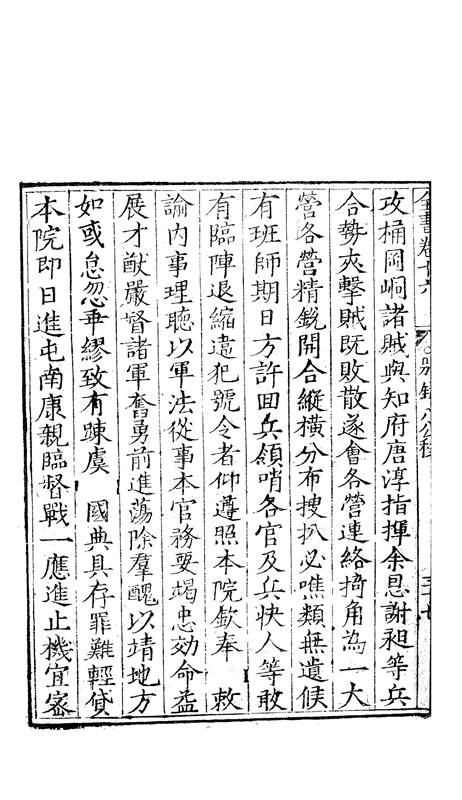 全書卷十六 別錄八公移 三十七
攻桶岡峒諸賊與知府唐淳指揮余恩謝昶等兵
合勢夾擊賊既敗散遂會各營連絡掎角為一大
營各營精銳開合縱橫分布搜扒必噍類無遺候
有班師期日方許回兵領哨各官及兵快人等敢
有臨陣退縮違犯號令者仰遵照本院欽奉 敕
諭內事理聽以軍法從事本官務要竭忠効命益
展才猷嚴督諸軍奮勇前進蕩除羣醜以靖地方
如或怠忽乖繆致有踈虞 國典具存罪難輕貸
本院即日進屯南康親臨督戰一應進止機宜密